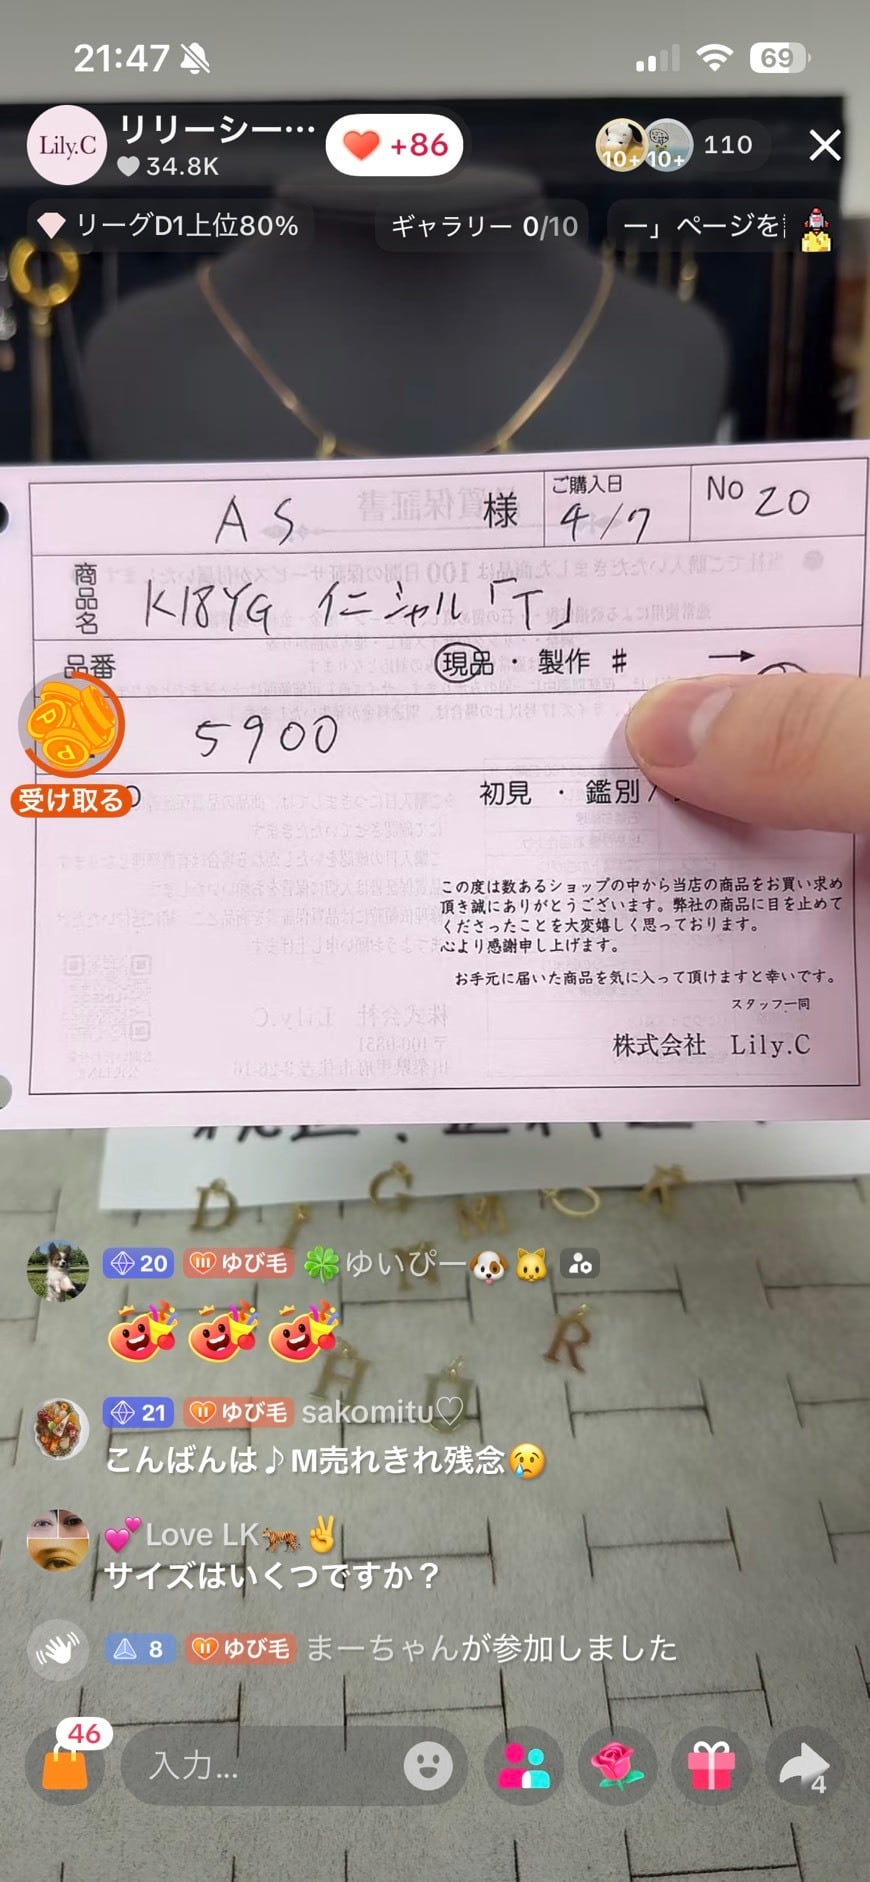 21:47
69
Lily.C
リリーシー…
34.8K
+86
10+
10+
110
リーグD1上位80%
ギャラリー 0/10
ー」ページを
AS 様
ご購入日
4/7
No 20
商品名
K18YG イニシャル「T」
品番
現品・製作 #
5900
受け取る
初見 ・ 鑑別 /
この度は数あるショップの中から当店の商品をお買い求め
頂き誠にありがとうございます。弊社の商品に目を止めて
くださったことを大変嬉しく思っております。
心より感謝申し上げます。
お手元に届いた商品を気に入って頂けますと幸いです。
スタッフ一同
株式会社 Lily.C
D
G
M
R
H
U
20 III ゆび毛 🍀ゆいぴー🐶🐱
21 II ゆび毛 sakomitu♡
こんばんは♪M売れきれ残念😢
💕Love LK🐅✌
サイズはいくつですか？
8 II ゆび毛 まーちゃんが参加しました
46
入力...
4